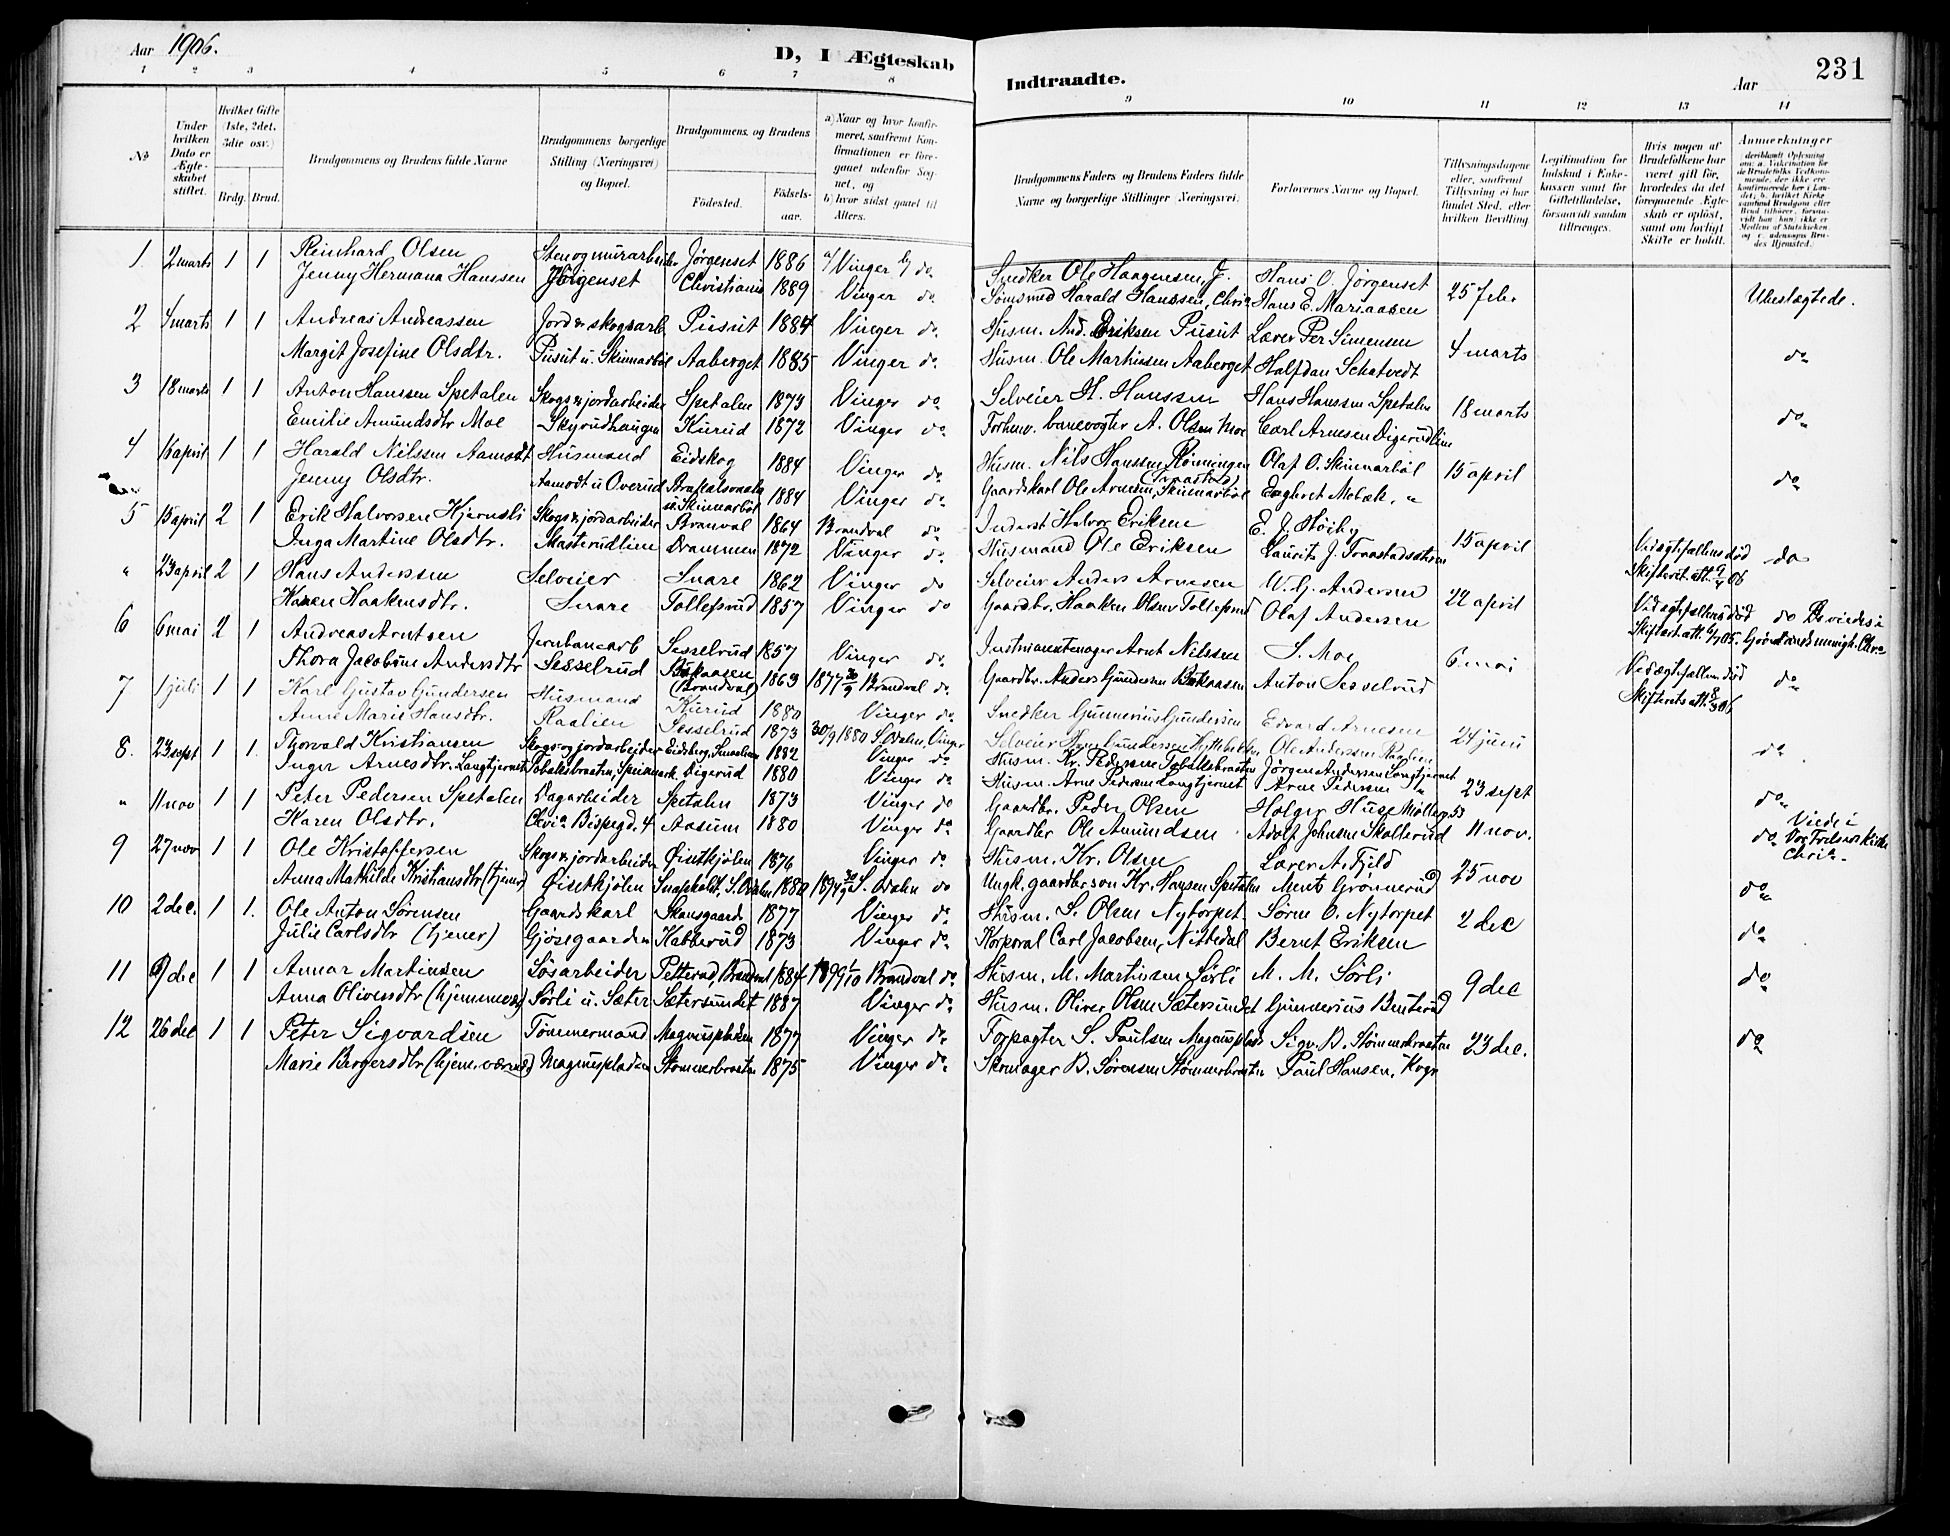 Aar 1906.
D, I Ægteskab
Indtraadte.
Aar
231
1 2 3 4 5 6 7 8 9 10 11 12 13 14
No
Under hvilken Dato er Ægteskabet stiftet.
Hvilket Gifte (1ste, 2det, 3die osv.)
Brdg. Brud.
Brudgommens og Brudens fulde Navne
Brudgommens borgerlige Stilling (Næringsvei) og Bopæl.
Brudgommens og Brudens
Fødested.
Fødselsaar.
a) Naar og hvor konfirmeret, saafremt Konfirmationen er foregaaet udenfor Sognet, og
b) hvor sidst gaaet til Alters.
Brudgommens Faders og Brudens Faders fulde Navne og borgerlige Stillinger (Næringsvei).
Forlovernes Navne og Bopæl.
Tillysningsdagene eller, saafremt Tillysning ei har fundet Sted, efter hvilken Bevilling
Legitimation for Indskud i Enkekassen samt for Giftetilladelse, forsaavidt saadan tiltrænges.
Hvis nogen af Brudefolkene har været gift før, hvorledes da det foregaaende Ægteskab er opløst, samt om lovligt Skifte er holdt.
Anmerkninger
1 2 marts 1 1 Reinhard Olsen Sten og murarbeider Jørgenset 1886 a/ Vinger b/ do Snedker Ole Haagensen J. Hans O. Jørgenset 25 febr Ubeslægtede.
Jenny Hermana Hanssen Jørgenset Christiania 1889 Vinger do Sømsmed Harald Hanssen, Chria Hans E. Mariaasen
2 4 marts 1 1 Andreas Andreassen Jord & skogsarb Pusut 1884 Vinger do Husm. And. Eriksen Pusut Lærer Per Simensen 4 marts do
Margit Josefine Olsdtr. Pusut u. Skinnarbøl Aaberget 1885 Vinger do Husm. Ole Martinsen Aaberget Halfdan Schatvedt
3 18 marts 1 1 Anton Hanssen Spetalen Skogs & jordarbeider Spetalen 1873 Vinger do Selveier H. Hanssen Hans Hanssen Spetalen 18 marts do
Emilie Amundsdtr Moe Skyrudhaugen Kurud 1872 Vinger do Forhenv. banevogter A. Olsen Moe Carl Arnesen Digerudlien
4 16 april 1 1 Harald Nilssen Aamodt Husmand Eidskog 1884 Vinger do Husm. Nils Hanssen Rønningen Olaf O. Skinnarbøl 15 april do
Jenny Olsdtr. Aamodt u Overud u. Skinnarbøl 1884 Vinger do Gaardskarl Ole Arnesen, Skinnarbøl Engbret Mobæk, "
5 15 april 2 1 Erik Halvorsen Hjernsli Skogs & jordarbeider Branval 1864 Brandval do Inderst Halvor Eriksen E. J. Støiby 15 april Ved ægtefællens død Skifteret att. 9/4 06 do
Inga Martine Olsdtr. Masterudlien Drammen 1872 Vinger do Husmand Ole Eriksen Laurits J. Traastadsætren
" 23 april 2 1 Hans Andersen Selveier Snare 1862 Vinger do Selveier Anders Arnesen W. G. Andersen 22 april Ved ægtefællens død Skifteret att. 6/4 05. do Bevidnes i Grønlands menigh. Chra
Karen Haakensdtr. Snare Tollefsrud 1857 Vinger do Gaardbr. Haaken Olsen Tollefsrud Olaf Andersen
6 6 mai 2 1 Andreas Arntsen Jernbanearb Sesselrud 1857 Vinger do Instrumentmager Arnt Nilssen S. Moe 6 mai Ved ægtefællens død Skifterets att. 8/3 06 do
Thora Jacobine Andersdtr Sesselrud (Brandval) 1863 1877 30/9 Brandval do Gaardbr. Anders Gundersen Anton Sesselrud
7 1 juli 1 1 Karl Gustav Gundersen Husmand Kurud 1880 Vinger do Snedker Gunnerius Gundersen Edvard Arnesen 24 juni do
Anne Marie Hansdtr. Raalien Sesselrud 1873 30/9 1880 S. Odalen, Vinger Selveier Hans Gundersen Hyttebakken Ole Andersen Raalien
8. 23 sept 1 1. Thorvald Kristiansen Skogs og jordarbeider Eidsberg, Smaalene 1882 Vinger do Husm. Kr. Pedersen Tobakksbraaten Jørgen Andersen Langtjernet 23 sept do
Inger Arnesdtr. Langtjernet Tobaksbraaten, Speismark Digerud 1880 Vinger do Husm. Arne Pedersen Langtjernet Arne Pedersen "
" 11 nov 1 1 Peter Pedersen Spetalen Dagarbeider Spetalen 1873 Vinger do Gaardbr. Peder Olsen Holger Huse Møllerg 53 11 nov. do Viede i Vor Frelsers Kirke Chria
Karen Olsdtr. Chria Bispegd. 4 Aasum 1880 Vinger do Gaardbr Ole Amundsen Adolf Johnsen Skallerud
9 27 nov 1 1 Ole Kristoffersen Skogs & jordarbeider Øistkjølen 1876 Vinger do Husm. Kr. Olsen Lærer A. Fjeld 25 nov do
Anna Mathilde Kristiansdtr (tjener) Øistkjølen Snapholdt, S. Odalen 1880 1894 30/9 S. Odalen do Ungk. gaardbrsøn Kr. Hansen Spetalen Ment Grønnerud
10 2 dec. 1 1. Ole Anton Sørensen Gaardskarl Skansgaarden 1877 Vinger do Husm. S. Olsen Nytorpet Søren O. Nytorpet 2 dec do
Julie Carlsdtr (tjener) Gjøsegaarden Kabberud 1873 Vinger do Korporal Carl Jacobsen, Nittedal Bernt Eriksen
11 9 dec 1 1 Annar Martinsen Løsarbeider Petterud, Brandval 1884 1899 1/10 Brandval do Husm. M. Martinsen Sørli M. M. Sørli 9 dec do
Anna Oliversdtr (hjemmev.) Sørli u. Sæter Sætersundet 1887 Vinger do Husm. Oliver Olsen Sætersundet Gunnerius Benterud
12 26 dec 1 1 Peter Sigvardsen Tømmermand Magnuspladsen 1877 Vinger do Forpagter S. Paulsen Magnusplads Sigv. B. Stømnerbraaten 23 dec. do
Marie Birgersdtr (hjem. værend) Magnuspladsen Stømnerbraaten 1875 Vinger do Skomager B. Sørensen Stømnerbraaten Paul Hansen, Kogr